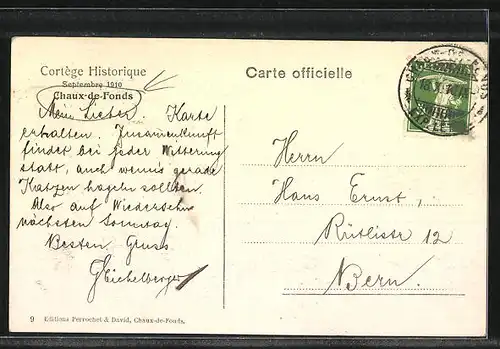 Cortège Historique
Septembre 1910
Chaux-de-Fonds
Carte officielle
Mein Lieber. Karte
erhalten. Zusammenkunft
findet bei jeder Witterung
statt, auch wenns gerade
Katzen hageln sollten.
Also auf Wiedersehn
nächsten Sonntag.
Besten Gruss
GEichelberger
Herrn
Hans Ernst,
Rütlistr 12
Bern.
9 Editions Perrochet & David, Chaux-de-Fonds.